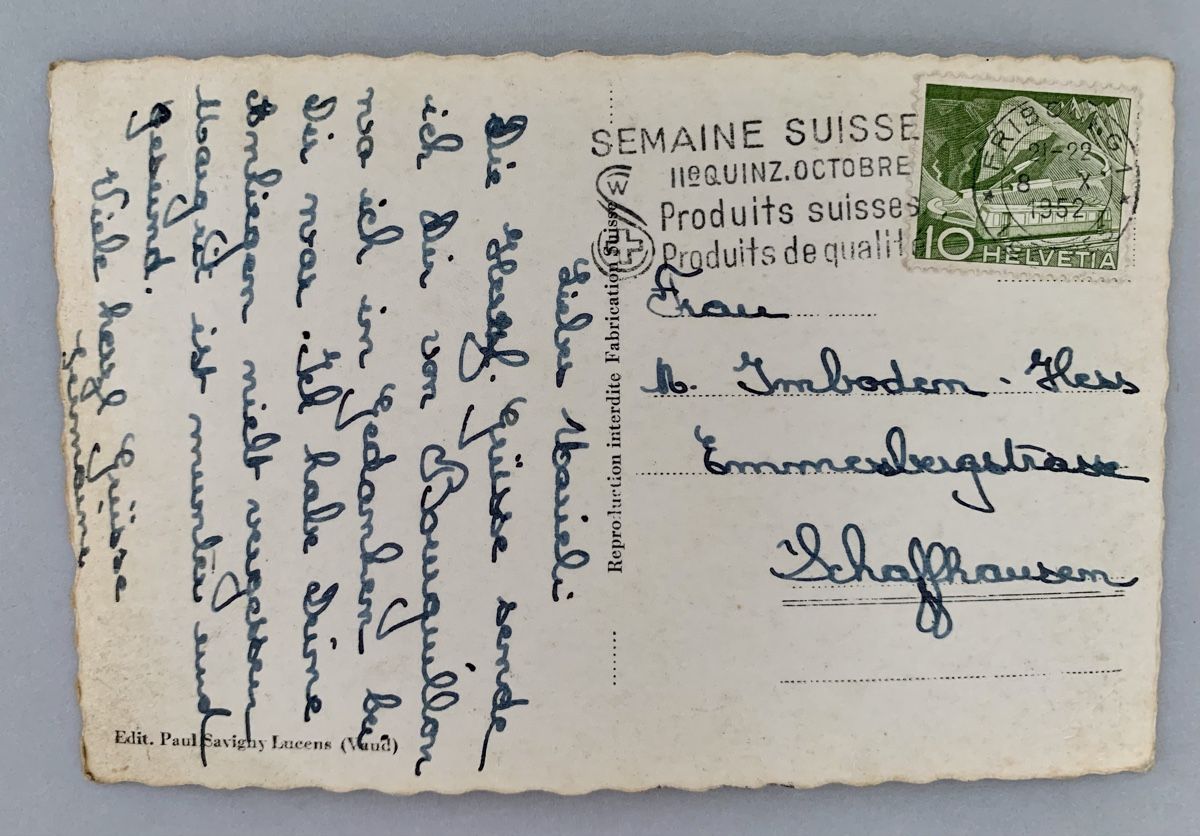 Liebes Marieli
Die Herzl. Grüsse sende
ich Dir von Bourguillon
wo ich in Gedanken bei
Dir war. Ich habe Deine
Anliegen nicht vergessen
Margrit ist munter und
gesund.
Viele herzl Grüsse
Germaine
Edit. Paul Savigny Lucens (Vaud)
Reproduction interdite Fabrication Suisse
SEMAINE SUISSE
IIe QUINZ. OCTOBRE
Produits suisses
Produits de qualité
W
FRIBOURG 1
21-22
8 X
1952
10 HELVETIA
Frau
M. Imboden - Hess
Emmersbergstrasse
Schaffhausen